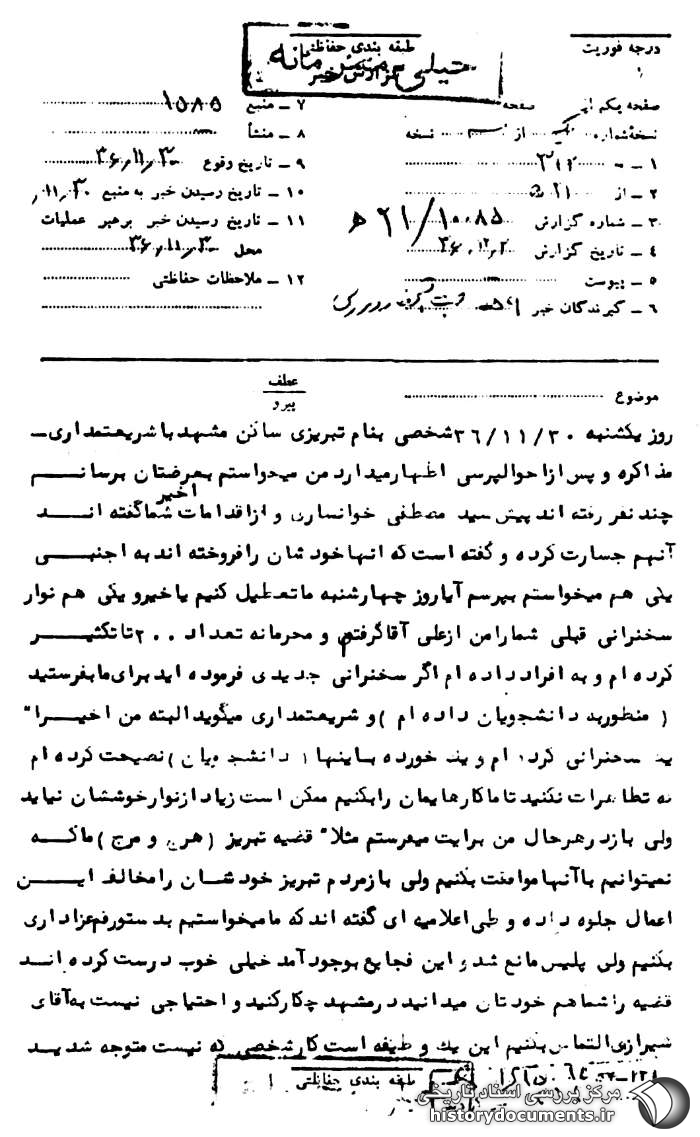 درجه فوریت
طبقه بندی حفاظتی
خیلی محرمانه
گزارش خبر
صفحه یکم از صفحه
نسخه شماره از نسخه
۱ – به ۳۱۲
۲ – از ۲۱ ه
۳ – شماره گزارش ۱۰۰۸۵/ ۲۱ ه
۴ – تاریخ گزارش ۳۶،۱۲،۲
۵ – پیوست
۶ – گیرندگان خبر
۷ – منبع ۱۵۸۵
۸ – منشأ
۹ – تاریخ وقوع ۳۶،۱۱،۳۰
۱۰ – تاریخ رسیدن خبر به منبع ۱۱،۳۰
۱۱ – تاریخ رسیدن خبر برهبر عملیات
محل ۳۶،۱۱،۳۰
۱۲ – ملاحظات حفاظتی
موضوع
عطف
پیرو
روز یکشنبه ۳۶/۱۱/۳۰ شخصی بنام تبریزی ساکن مشهد با شریعتمداری –
مذاکره و پس از احوالپرسی اظهار میدارد من میخواستم بعرضتان برسانم
چند نفر رفته اند پیش سید مصطفی خوانساری و از اقدامات اخیر شما گفته اند
آنهم جسارت کرده و گفته است که انها خودشان را فروخته اند به اجنبی
یکی هم میخواستم بپرسم آیا روز چهارشنبه ما تعطیل کنیم یا خیر و یکی هم نوار
سخنرانی قبلی شما را من از علی آقا گرفتم و محرمانه تعداد ۲۰۰ تا تکثیر
کرده ام و به افراد داده ام اگر سخنرانی جدیدی فرموده اید برای ما بفرستید
( منظور به دانشجویان داده ام ) و شریعتمداری میگوید البته من اخیرا"
یک سخنرانی کرده ام و یک خورده باینها ( دانشجویان ) نصیحت کرده ام
که تظاهرات نکنید تا ما کارهایمان را بکنیم ممکن است زیاد از نوار خوششان نیاید
ولی باز در هر حال من برایت میفرستم مثلا" قضیه تبریز ( هرج و مرج ) ما که
نمیتوانیم با آنها موافقت بکنیم ولی باز مردم تبریز خودشان را مخالف این
اعمال جلوه داده و طی اعلامیه ای گفته اند که ما میخواستیم بدستور قم عزاداری
بکنیم ولی پلیس مانع شد و این فجایع بوجود آمد خیلی خوب درست کرده اند
قضیه را شما هم خودتان میدانید در مشهد چکار کنید و احتیاجی نیست به آقای
شیرازی التماس بکنیم این یک وظیفه است کار شخصی که نیست متوجه شدید
طبقه بندی حفاظتی
مرکز بررسی اسناد تاریخی
historydocuments.ir